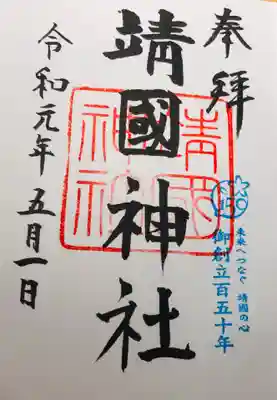 奉拝
靖國神社
靖國神社
150
未来へつなぐ 靖國の心
御創立百五十年
令和元年 五月一日